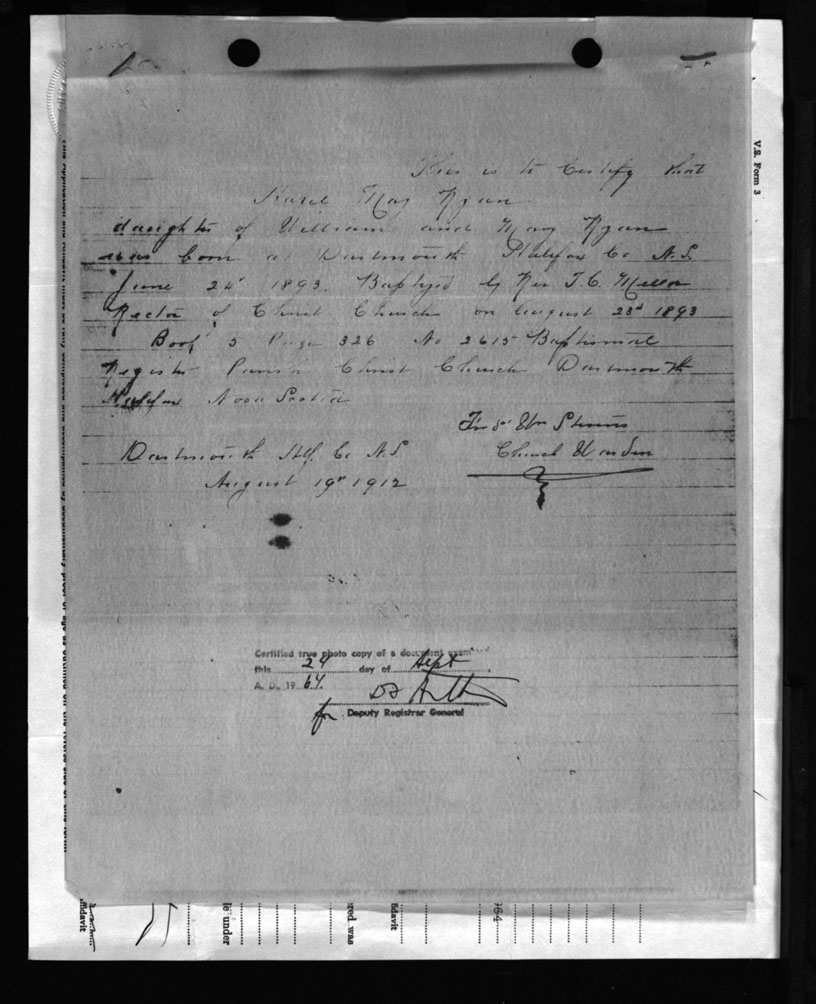 This is to Certify that
Hazel May Ryan
daughter of William and May Ryan
was born at Dartmouth Halifax Co N.S.
June 24th 1893. Baptized by Rev T.C. Mellor
Rector of Christ Church on August 23d 1893
Book 5 Page 326 No 2615 Baptismal
Register Parish Christ Church Dartmouth
Halifax Nova Scotia
Wm Stevens
Church Warden
Dartmouth Hfx Co N.S.
August 19th 1912
Certified true photo copy of a document examined
this 24 day of Sept
A. D., 19 64.
for Deputy Registrar General
V.S. Form 3
le under
red was
fidavit
964
fidavit